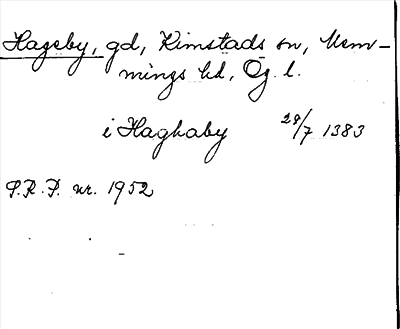 Hageby, gd, Kimstads sn, Mem-
mings hd, Ög. l.
i Haghaby 28/7 1383
S.R.P. nr. 1952